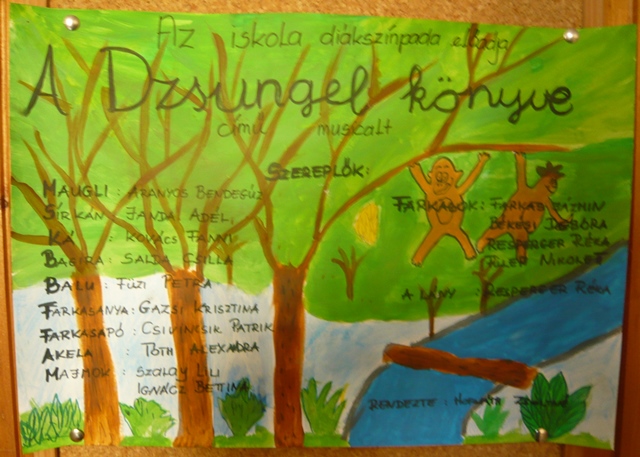 Az iskola diákszínpada előadja
A Dzsungel könyve
című musicalt
SZEREPLŐK:
MAUGLI : ARANYOS BENDEGÚZ
SÍRKÁN : JANDA ADÉL
KÁ : KOVÁCS FANNI
BAGIRA : SALLA CSILLA
BALU : FÜZI PETRA
FARKASANYA : GAZSI KRISZTINA
FARKASAPÓ : CSIVINCSIK PATRIK
AKELA : TÓTH ALEXANDRA
MAJMOK : SZALAY LILI
IGNÁCZ BETTINA
FARKASOK : FARKAS
BÉKÉSI DEBÓRA
RESPERGER RÉKA
NIKOLETT
A LÁNY : RESPERGER RÉKA
RENDEZTE :